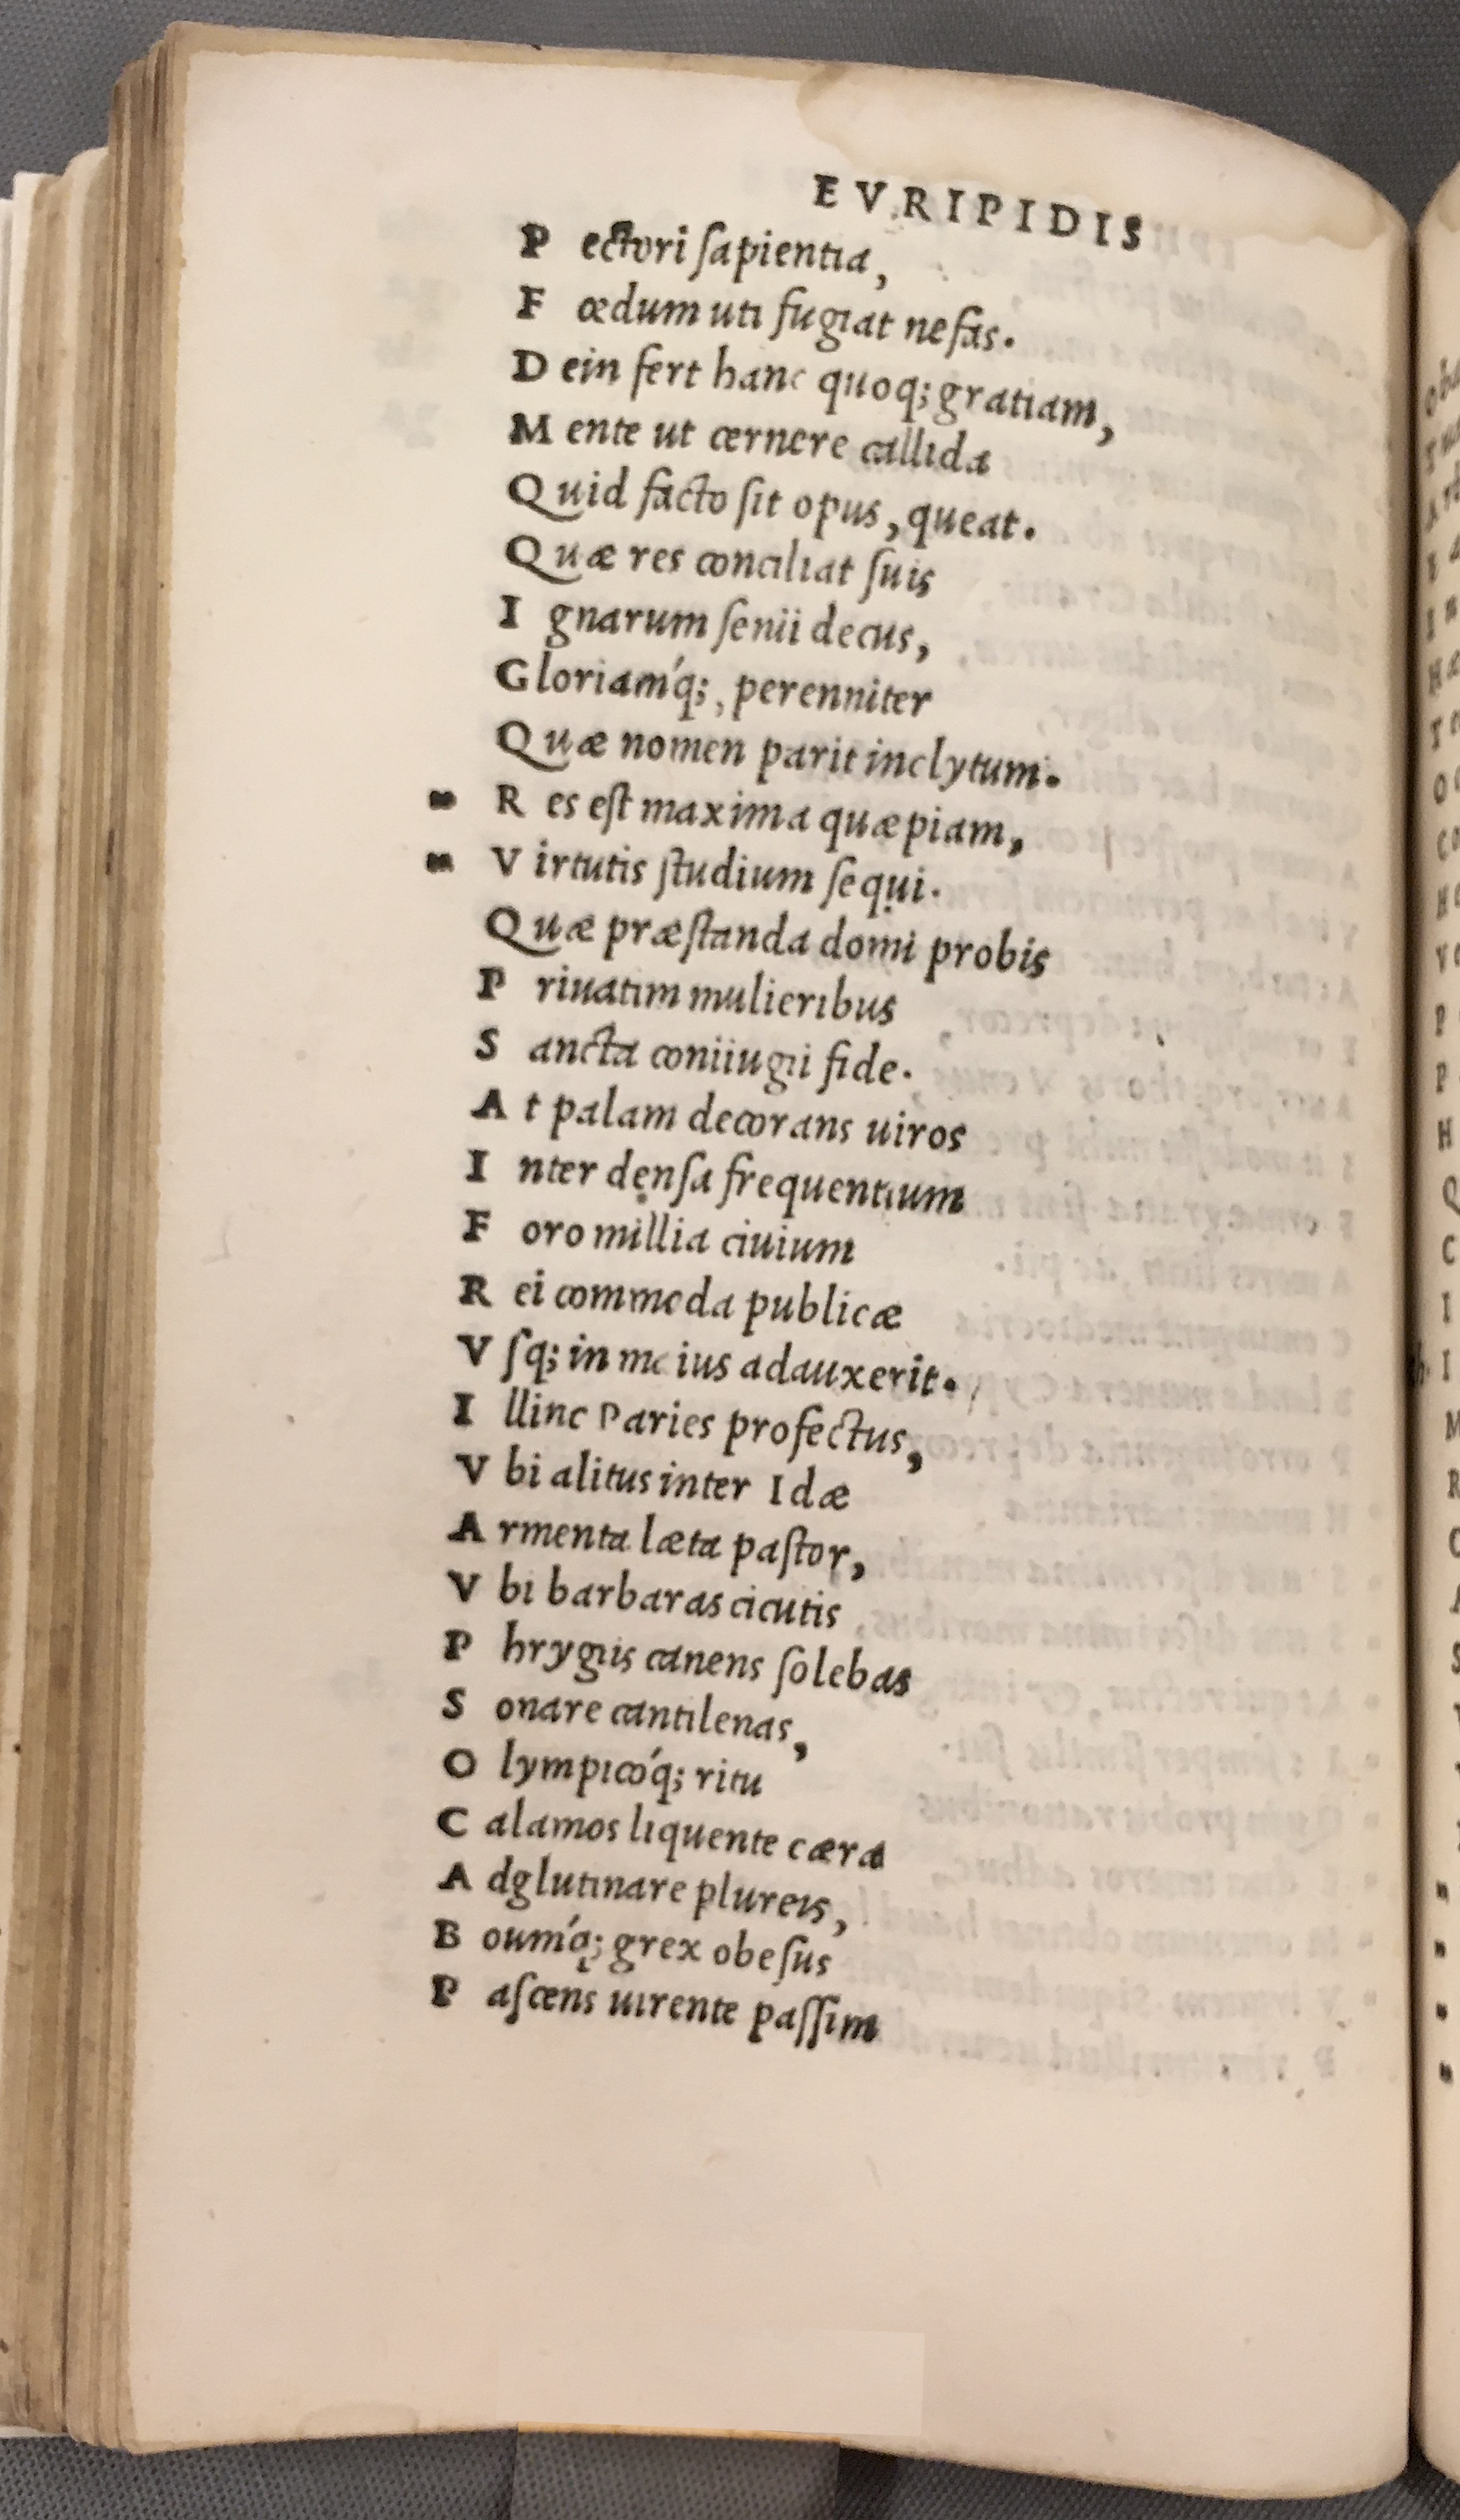 EVRIPIDIS
Pectori ſapientia,
Fœdum uti fugiat nefas.
Dein fert hanc quoq; gratiam,
Mente ut cernere callida
Quid facto ſit opus, queat.
Quæ res conciliat ſuis
Ignarum ſenii decus,
Gloriam'q;, perenniter
Quæ nomen parit inclytum.
" Res eſt maxima quæpiam,
" Virtutis ſtudium ſequi.
Quæ præſtanda domi probis
Priuatim mulieribus
Sancta coniiugii fide.
At palam decorans uiros
Inter denſa frequentium
Foro millia ciuium
Rei commoda publicæ
Vſq; in meius adauxerit.
Illinc Paries profectus,
Vbi alitus inter Idæ
Armenta læta paſtor,
Vbi barbaras cicutis
Phrygiis canens ſolebas
Sonare cantilenas,
Olympico'q; ritu
Calamos liquente cæra
Adglutinare plureis,
Boum'q; grex obeſus
Paſcens uirente paſſim